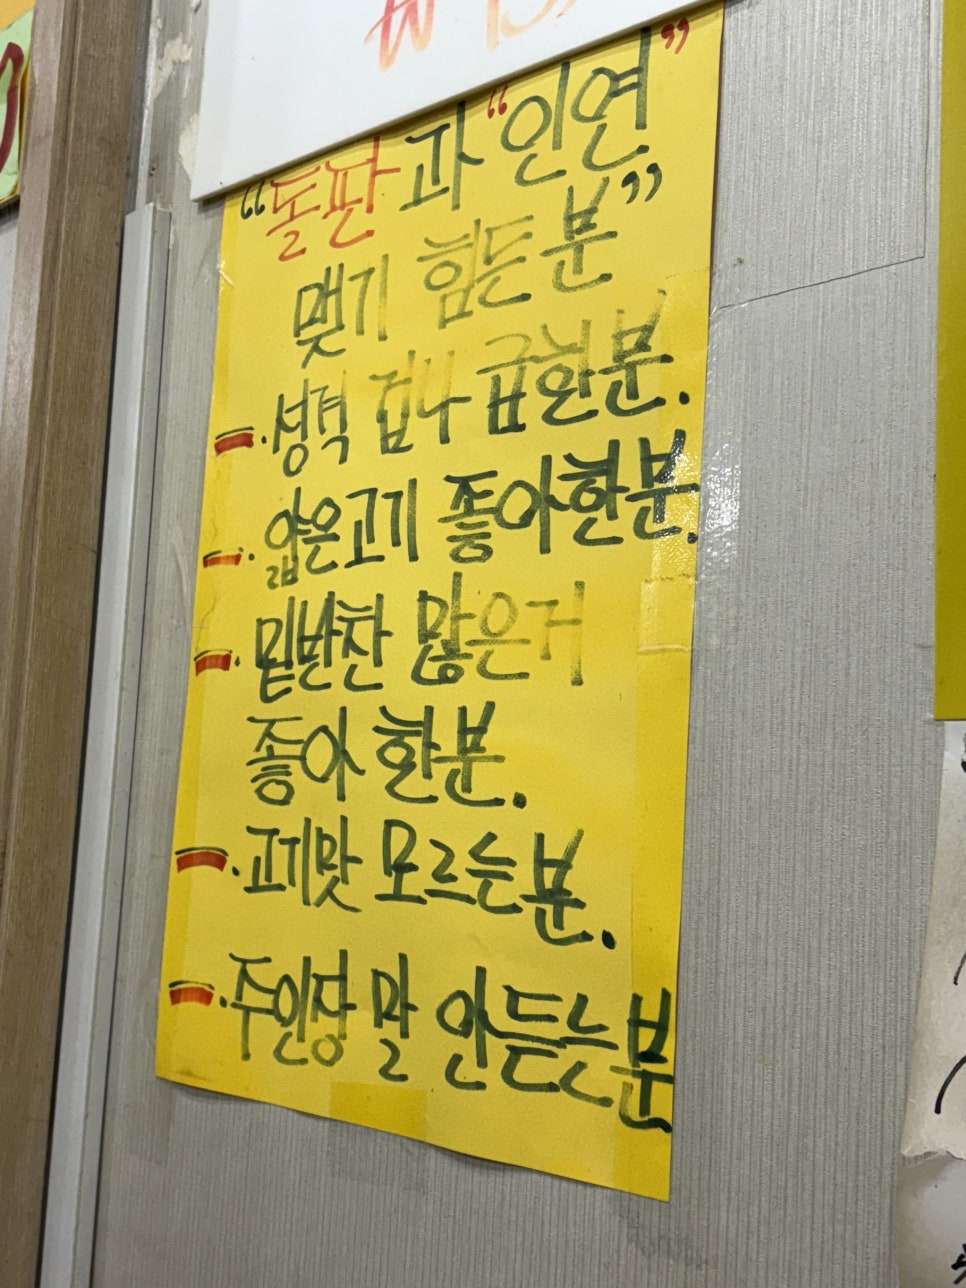 "돌판과 "인연"
맺기 힘든 분"
一. 성격 겁나 급환분.
一. 얇은고기 좋아한분.
一. 밑반찬 많은거
좋아 환분.
一. 고기맛 모르는분.
一. 주인장 말 안듣는분